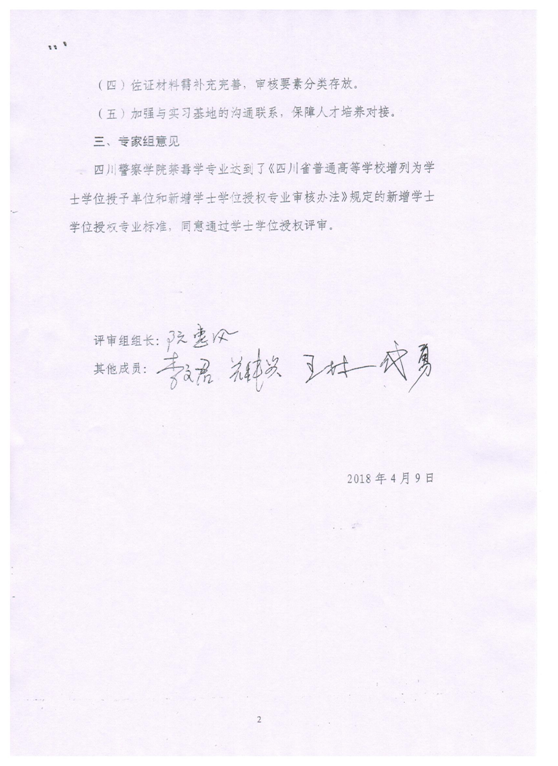 （四）佐证材料需补充完善，审核要素分类存放。
（五）加强与实习基地的沟通联系，保障人才培养对接。
三、专家组意见
四川警察学院禁毒学专业达到了《四川省普通高等学校增列为学
士学位授予单位和新增学士学位授权专业审核办法》规定的新增学士
学位授权专业标准，同意通过学士学位授权评审。
评审组组长：阮惠风
其他成员：李文君 王林 代勇
2018年4月9日
2